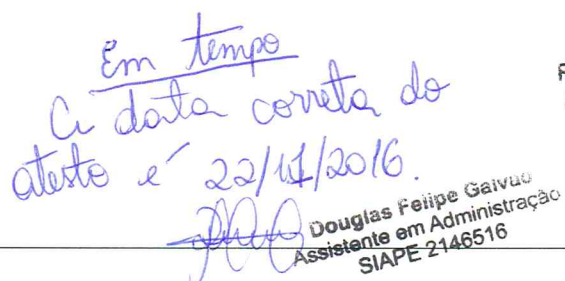 Em tempo
A data correta do
atesto é 22/11/2016.
Douglas Felipe Galvão
Assistente em Administração
SIAPE 2146516